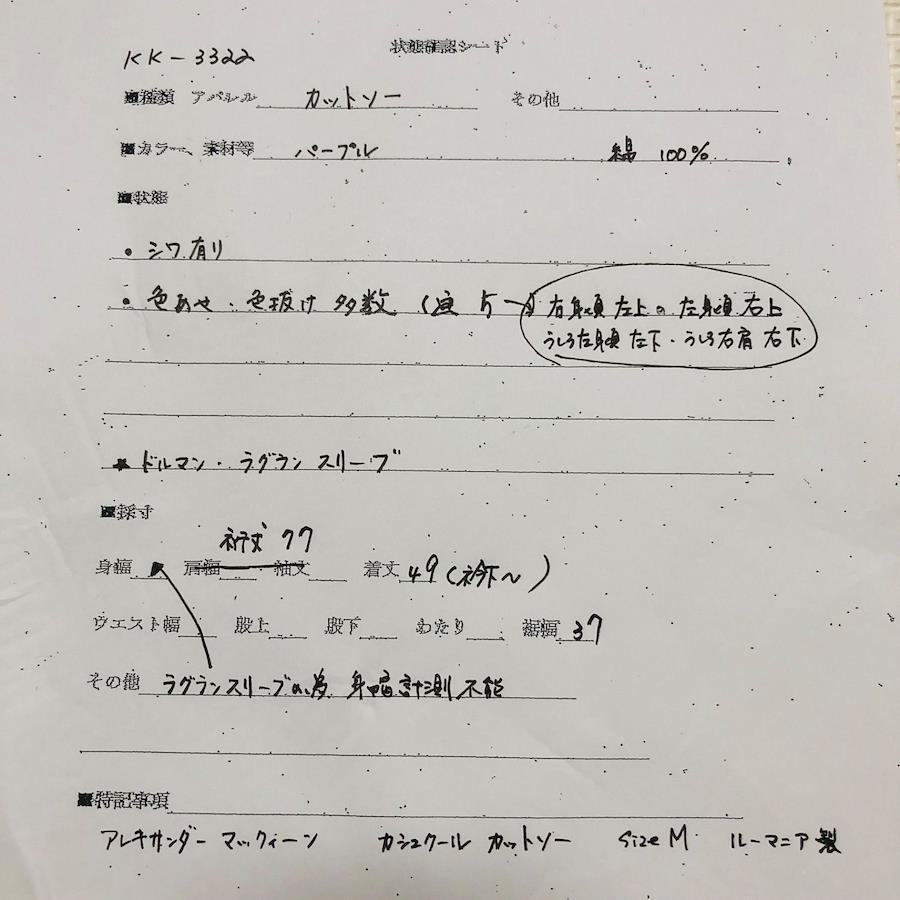 状態確認シート
KK-3322
■種類 アパレル カットソー その他
■カラー、素材等 パープル 綿 100%
■状態
・シワ有り
・色あせ・色抜け 多数 ( 右身頃 左上・左身頃 右上
うしろ左身頃 左下・うしろ右肩 右下
★ドルマン・ラグランスリーブ
■採寸
裄丈 77
身幅 肩幅 袖丈 着丈 49(衿下~)
ウエスト幅 股上 股下 わたり 裾幅 37
その他 ラグランスリーブの為 身幅計測不能
■特記事項
アレキサンダー マックイーン カシュクール カットソー Size M ルーマニア製